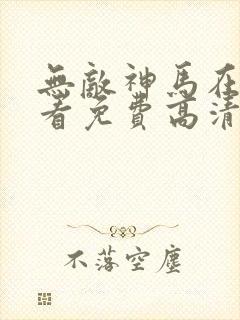 無敵神馬在
看免費高清
不落空塵